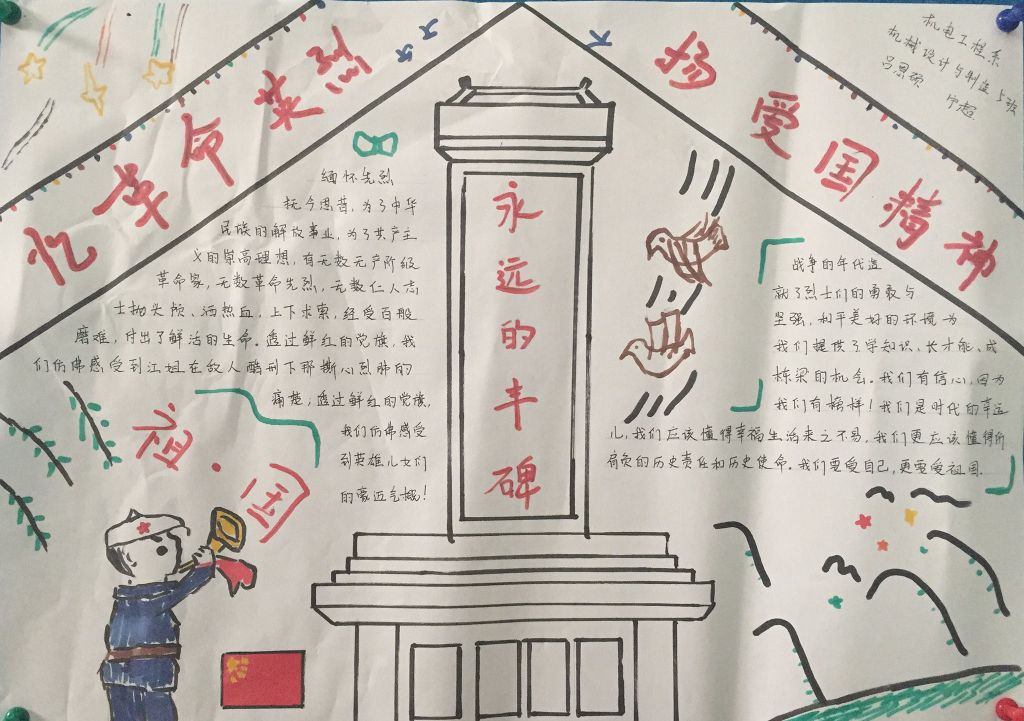 忆革命英烈
扬爱国精神
机电工程系
机械设计与制造5班
吕恩硕
宁超
缅怀先烈
抚今思昔，为了中华
民族的解放事业，为了共产主
义的崇高理想，有无数无产阶级
革命家，无数革命先烈，无数仁人志
士抛头颅、洒热血，上下求索，经受百般
磨难，付出了鲜活的生命。透过鲜红的党旗，我
们仿佛感受到江姐在敌人酷刑下那撕心烈肺的
痛楚；透过鲜红的党旗，
我们仿佛感受
到英雄儿女们
的豪迈气概！
祖·国
永远的丰碑
战争的年代造
就了烈士们的勇敢与
坚强，和平美好的环境为
我们提供了学知识、长才能、成
栋梁的机会。我们有信心，因为
我们有榜样！我们是时代的幸运
儿，我们应该懂得幸福生活来之不易，我们更应该懂得所
肩负的历史责任和历史使命。我们要爱自己，更要爱祖国.